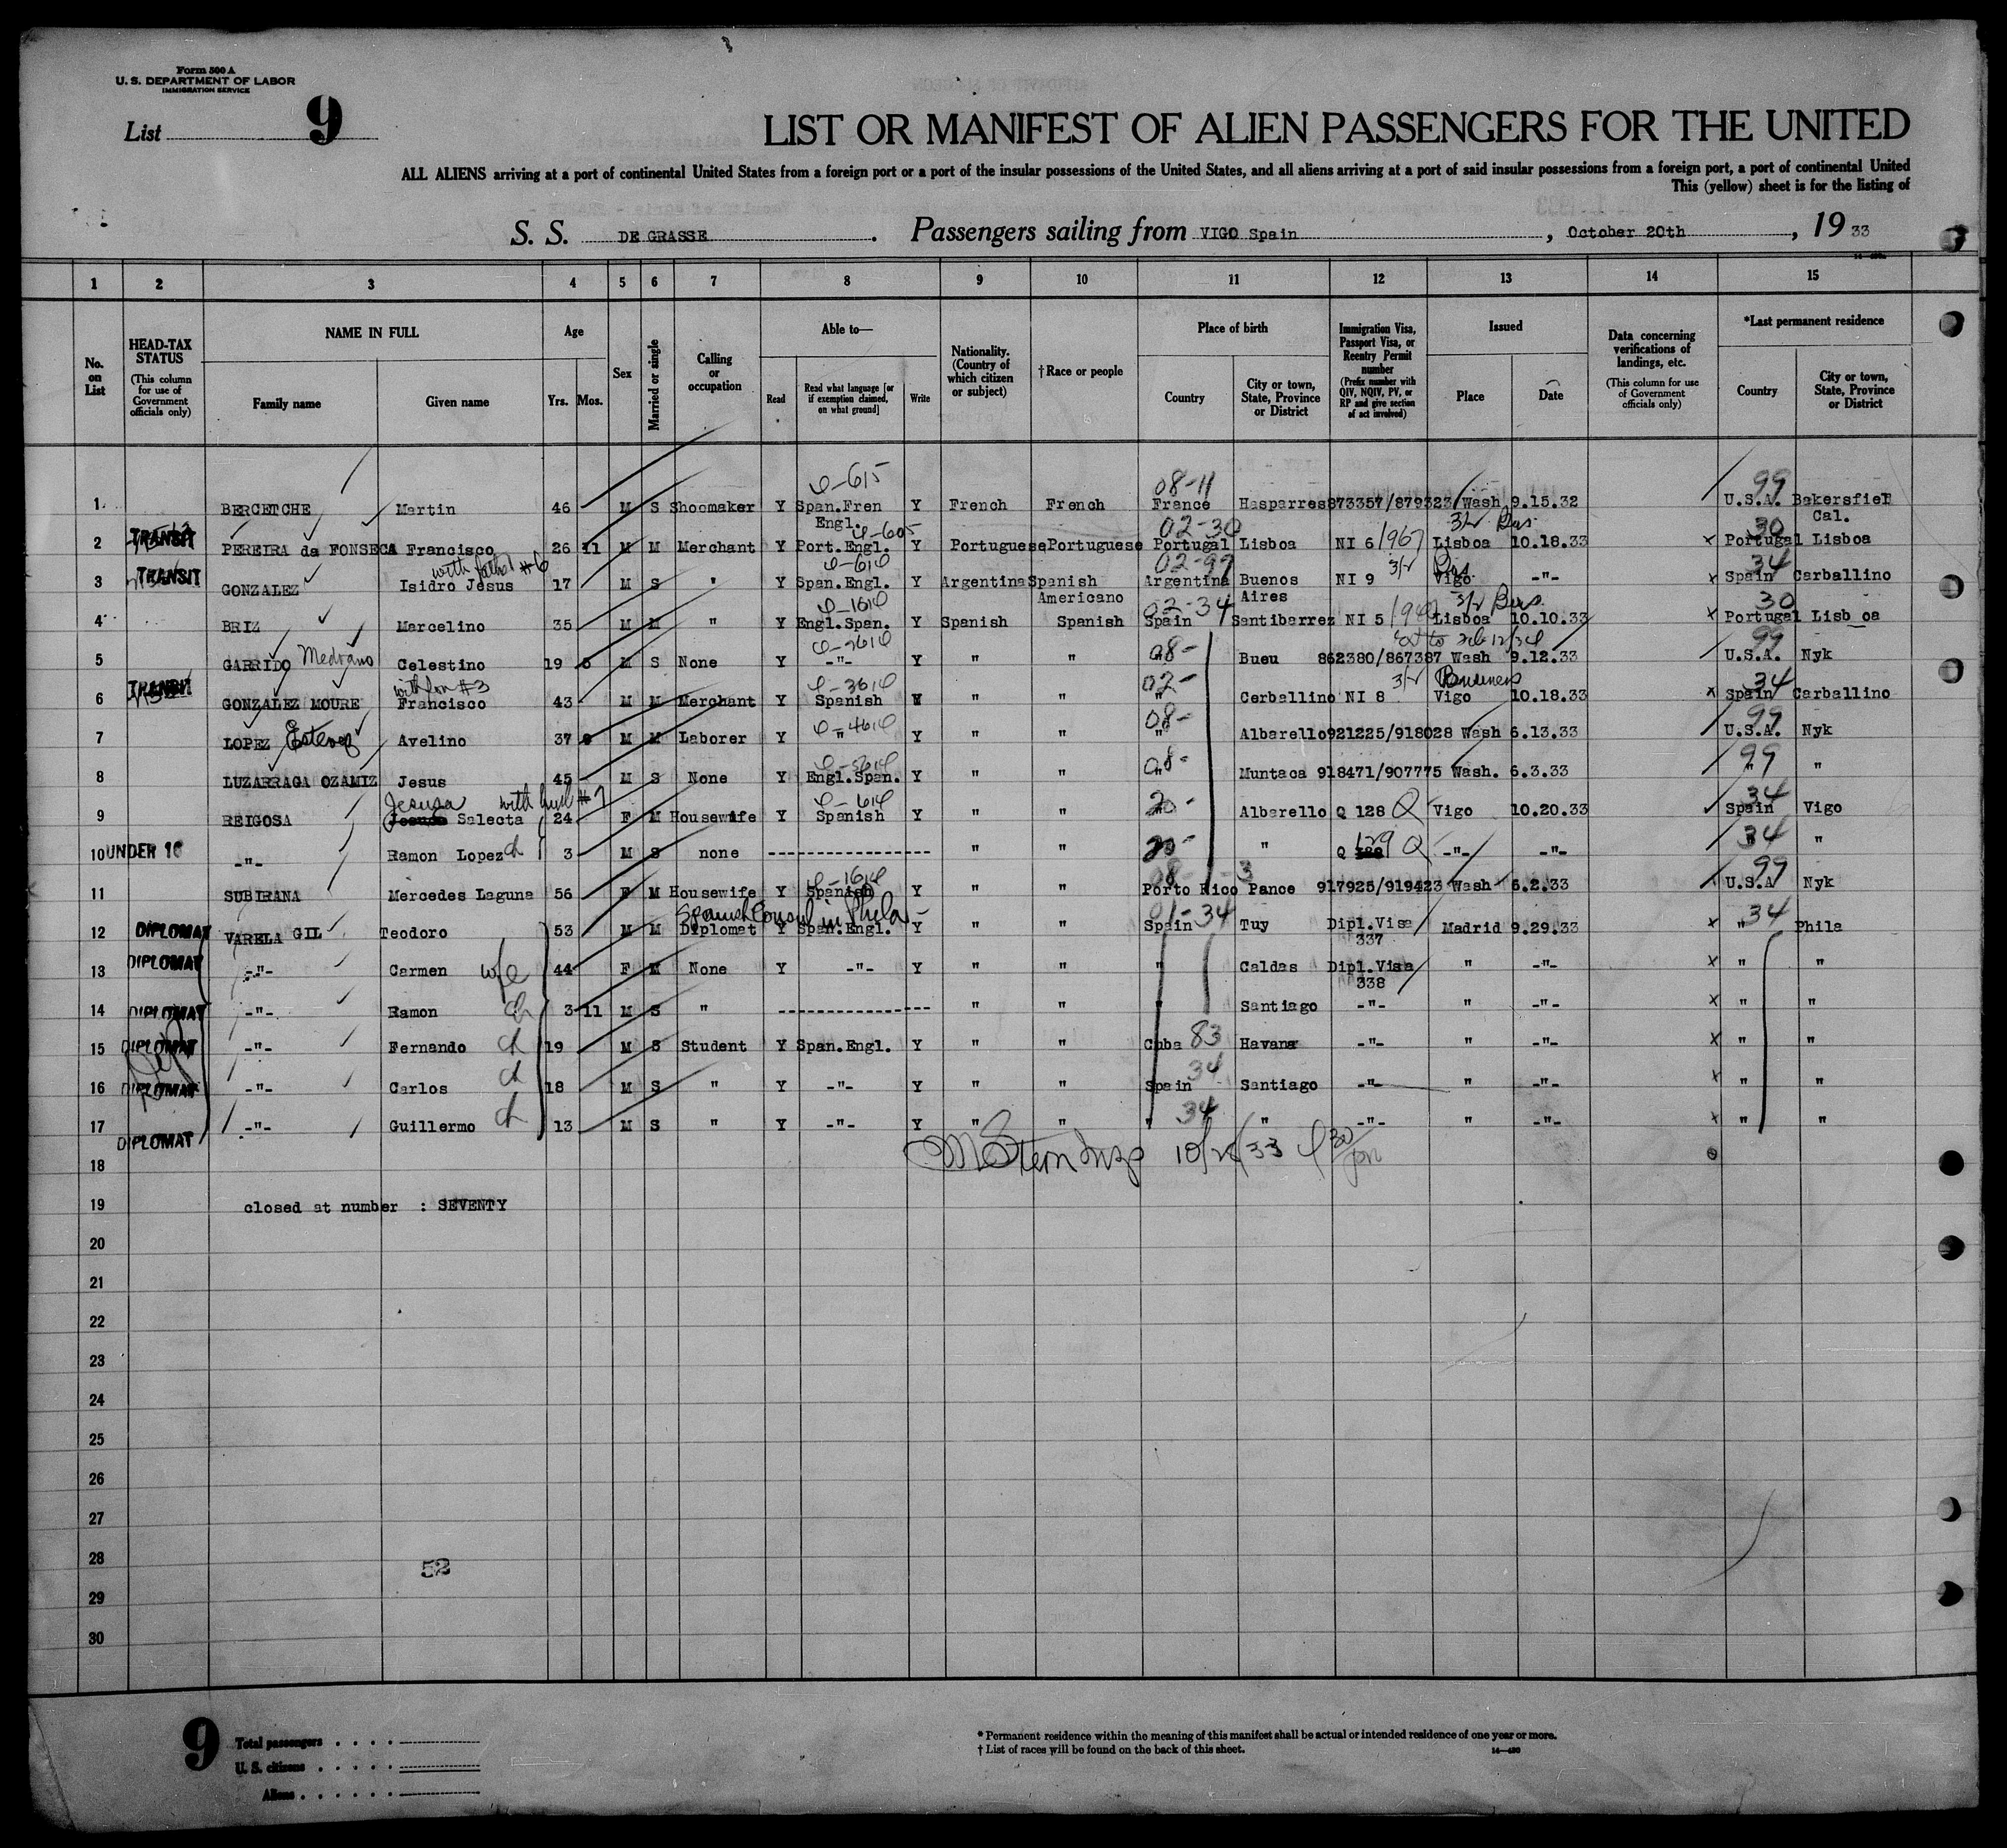 Form 500 A
U. S. DEPARTMENT OF LABOR
IMMIGRATION SERVICE
List 9
LIST OR MANIFEST OF ALIEN PASSENGERS FOR THE UNITED
ALL ALIENS arriving at a port of continental United States from a foreign port or a port of the insular possessions of the United States, and all aliens arriving at a port of said insular possessions from a foreign port, a port of continental United
This (yellow) sheet is for the listing of
S. S. DE GRASSE. Passengers sailing from VIGO Spain, October 20th, 19 33
1 2 3 4 5 6 7 8 9 10 11 12 13 14 15
No. on List
HEAD-TAX STATUS (This column for use of Government officials only)
NAME IN FULL
Family name
Given name
Age
Yrs. Mos.
Sex
Married or single
Calling or occupation
Able to—
Read
Read what language [or if exemption claimed, on what ground]
Write
Nationality. (Country of which citizen or subject)
† Race or people
Place of birth
Country
City or town, State, Province or District
Immigration Visa, Passport Visa, or Reentry Permit number (Prefix number with QIV, NQIV, PV, or RP and give section of act involved)
Issued
Place
Date
Data concerning verifications of landings, etc. (This column for use of Government officials only)
*Last permanent residence
Country
City or town, State, Province or District
1 BERCETCHE Martin 46 M S Shoemaker Y Span.Fren Engl. Y French French 08-11 France Hasparres 873357/879323 Wash 9.15.32 99 U.S.A. Bakersfiel Cal.
2 TRANSIT PEREIRA da FONSECA Francisco 26 11 M M Merchant Y Port.Engl. Y Portuguese Portuguese 02-30 Portugal Lisboa NI 6 Lisboa 10.18.33 x 30 Portugal Lisboa
3 TRANSIT GONZALEZ Isidro Jesus with father #6 17 M S " Y Span.Engl. Y Argentina Spanish Americano 02-99 Argentina Buenos Aires NI 9 Vigo -"- x 34 Spain Carballino
4 BRIZ Marcelino 35 M M " Y Engl.Span. Y Spanish Spanish 02-34 Spain Santibarrez NI 5 Lisboa 10.10.33 x 30 Portugal Lisb oa
5 GARRIDO Medrano Celestino 19 5 M S None Y -"- Y " " 08- " Bueu 862380/867387 Wash 9.12.33 99 U.S.A. Nyk
6 TRANSIT GONZALEZ MOURE Francisco with son #3 43 M M Merchant Y Spanish Y " " 02- " Cerballino NI 8 Vigo 10.18.33 x 34 Spain Carballino
7 LOPEZ Estevez Avelino 37 M M Laborer Y " Y " " 08- " Albarello 921225/918028 Wash 6.13.33 99 U.S.A. Nyk
8 LUZARRAGA OZAMIZ Jesus 45 M S None Y Engl.Span. Y " " 08- " Muntaca 918471/907775 Wash. 6.3.33 99 " "
9 REIGOSA Jesusa Salecta with husb #7 24 F M Housewife Y Spanish Y " " 20- Albarello Q 128 Q Vigo 10.20.33 34 Spain Vigo
10 UNDER 16 -"- Ramon Lopez ch 3 M S none -------- " " 20- " Q 129 Q -"- -"- 34 " "
11 SUBIRANA Mercedes Laguna 56 F M Housewife Y Spanish Y " " Porto Rico Ponce 917925/919423 Wash 6.2.33 99 U.S.A Nyk
12 DIPLOMAT VARELA GIL Teodoro 53 M M Spanish Consul in Phila Diplomat Y Span.Engl. Y " " 01-34 Spain Tuy Dipl.Visa 337 Madrid 9.29.33 x 34 " Phila
13 DIPLOMAT -"- Carmen wfe 44 F M None Y -"- Y " " " Caldas Dipl.Visa 338 " -"- x " "
14 DIPLOMAT -"- Ramon ch 3 11 M S " -------- " " " Santiago -"- " -"- x " "
15 DIPLOMAT -"- Fernando ch 19 M S Student Y Span.Engl. Y " " Cuba 83 Havana -"- " -"- x " "
16 DIPLOMAT -"- Carlos ch 18 M S " Y -"- Y " " Spain 34 Santiago -"- " -"- x " "
17 DIPLOMAT -"- Guillermo ch 13 M S " Y -"- Y " " " 34 " -"- " -"- x " "
18
19 closed at number : SEVENTY
20
21
22
23
24
25
26
27
28
29
30
52
9
Total passengers
U. S. citizens
Aliens
* Permanent residence within the meaning of this manifest shall be actual or intended residence of one year or more.
† List of races will be found on the back of this sheet.
14—480